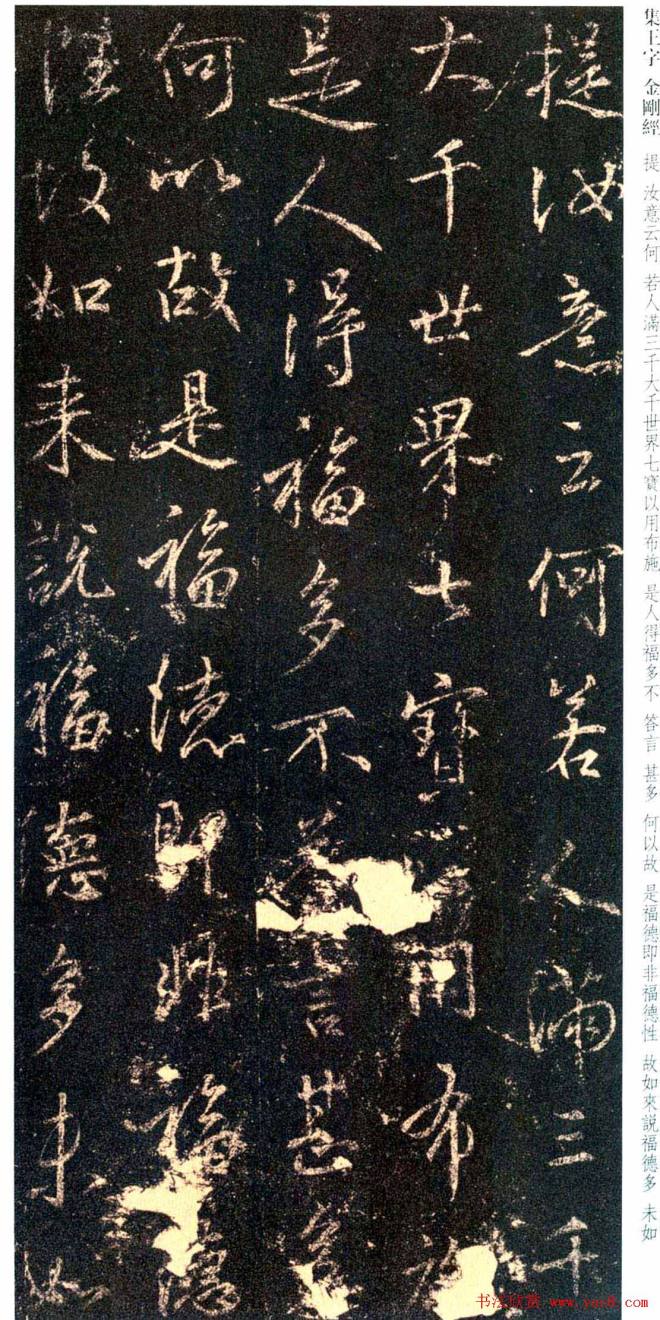 集王字 金剛經 提 汝意云何 若人滿三千大千世界七寶以用布施 是人得福多不 答言 甚多 何以故 是福德即非福德性 故如來說福德多 未如
提汝意云何若人滿三千
大千世界七寶以用布施
是人得福多不答言甚多
何以故是福德即非福德
性故如来說福德多未如
书法欣赏 www.yac8.com